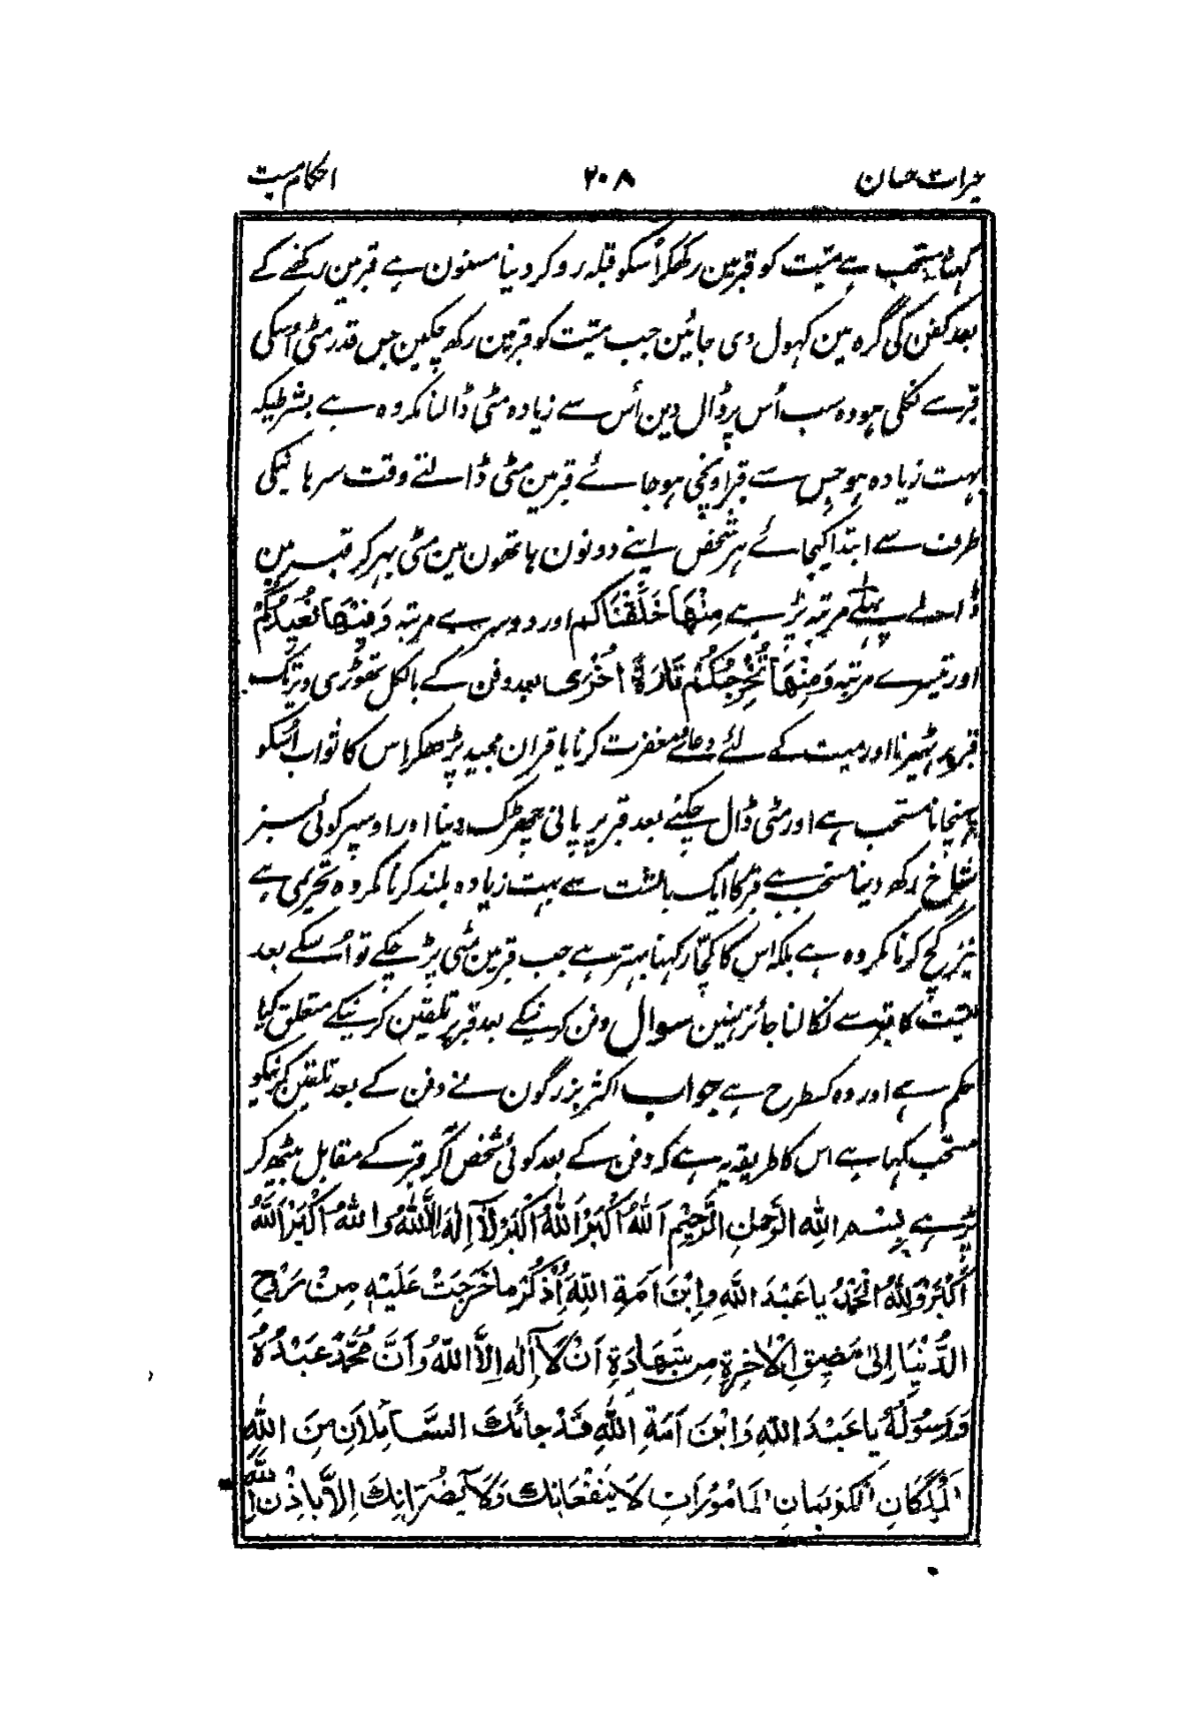 میراث حسان ۲۰۸ احکام میت
کہنا مستحب ہے میّت کو قبر مین رکھکر اُسکو قبلہ رو کر دینا مسنون ہے قبر مین رکھنے کے
بعد کفن کی گرہ مین کہول دی جائین جب میّت کو قبر مین رکھ چکین جس قدر مٹی اُوسکی
قبر سے نکلی ہو وہ سب اُس پر ڈال دین اُس سے زیادہ مٹی ڈالنا مکروہ ہے بشرطیکہ
بہت زیادہ ہو جس سے قبر اونچی ہو جائے قبر مین مٹی ڈالتے وقت سرہانیکی
طرف سے ابتدا کیجائے ہر شخص اپنے دونون ہاتھون مین مٹی بہر کر قبر مین
ڈالے پہلے مرتبہ پڑہے مِنْهَا خَلَقْنَاكم اور دوسرے مرتبہ وَفِيْهَا نُعِيْدُكُمْ
اور تیسرے مرتبہ وَمِنْهَا نُخْرِجُكُمْ تَارَةً اُخْرٰى بعد دفن کے بالکل تھوڑی دیر تک
قبر پر ٹہیرنا اور میت کے لئے دعائے مغفرت کرنا یا قران مجید پڑھکر اس کا ثواب اُسکو
پہنچانا مستحب ہے اور مٹی ڈال چکنے بعد قبر پر پانی چھڑک دینا اور اوسپر کوئی سبز
شاخ رکھ دینا مستحب ہے قبر کا ایک بالشت سے بہت زیادہ بلند کرنا مکروہ تحریمی ہے
نیز گچ کرنا مکروہ ہے بلکہ اس کا کچّا رکہنا بہتر ہے جب قبر مین مٹی پڑ چکے تو اُسکے بعد
میّت کا قبر سے نکالنا جائز نہین سوال دفن کرنیکے بعد قبر پر تلقین کرنیکے متعلق کیا
حکم ہے اور وہ کسطرح ہے جواب اکثر بزرگون نے دفن کے بعد تلقین کرنیکو
مستحب کہا ہے اس کا طریقہ یہ ہے کہ دفن کے بعد کوئی شخص آکر قبر کے مقابل بیٹھ کر
پڑہے بِسْمِ اللهِ الرَّحْمٰنِ الرَّحِيْمِ اَللهُ اَكْبَرُ اَللهُ اَكْبَرُ لَآ اِلٰهَ اِلَّا اللهُ وَاللهُ اَكْبَرُ اَللهُ
اَكْبَرُ وَلِلّٰهِ الْحَمْدُ يا عَبْدَ اللهِ وابْنَ اَمَةِ اللهِ اُذْكُرْ ما خَرَجْتَ عَلَيْهِ مِنْ رَوْحِ
الدُّنْيَا اِلىٰ مَضِيقِ الْاٰخِرَةِ مِن شَهَادَةِ اَنْ لَآ اِلٰه اِلَّا اللهُ وَاَنَّ مُحَمَّدً عَبْدُهُ
وَرَسُوْلُهُ يا عَبْدَ اللهِ وَابْنَ اَمَةِ اللهِ قَدْ جائَكَ السَّآئِلَانِ مِنَ اللهِ
الْمَلَكَانِ المُكَرَّمانِ المَأْمُوْرَانِ لَا يَنْفَعَانِكَ وَلَا يَضُرَّانِكَ اِلَّا بِاِذْنِ اللهِ